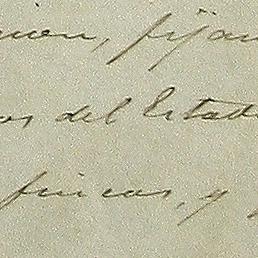 nion, fijan
os del Estado
fincas, y